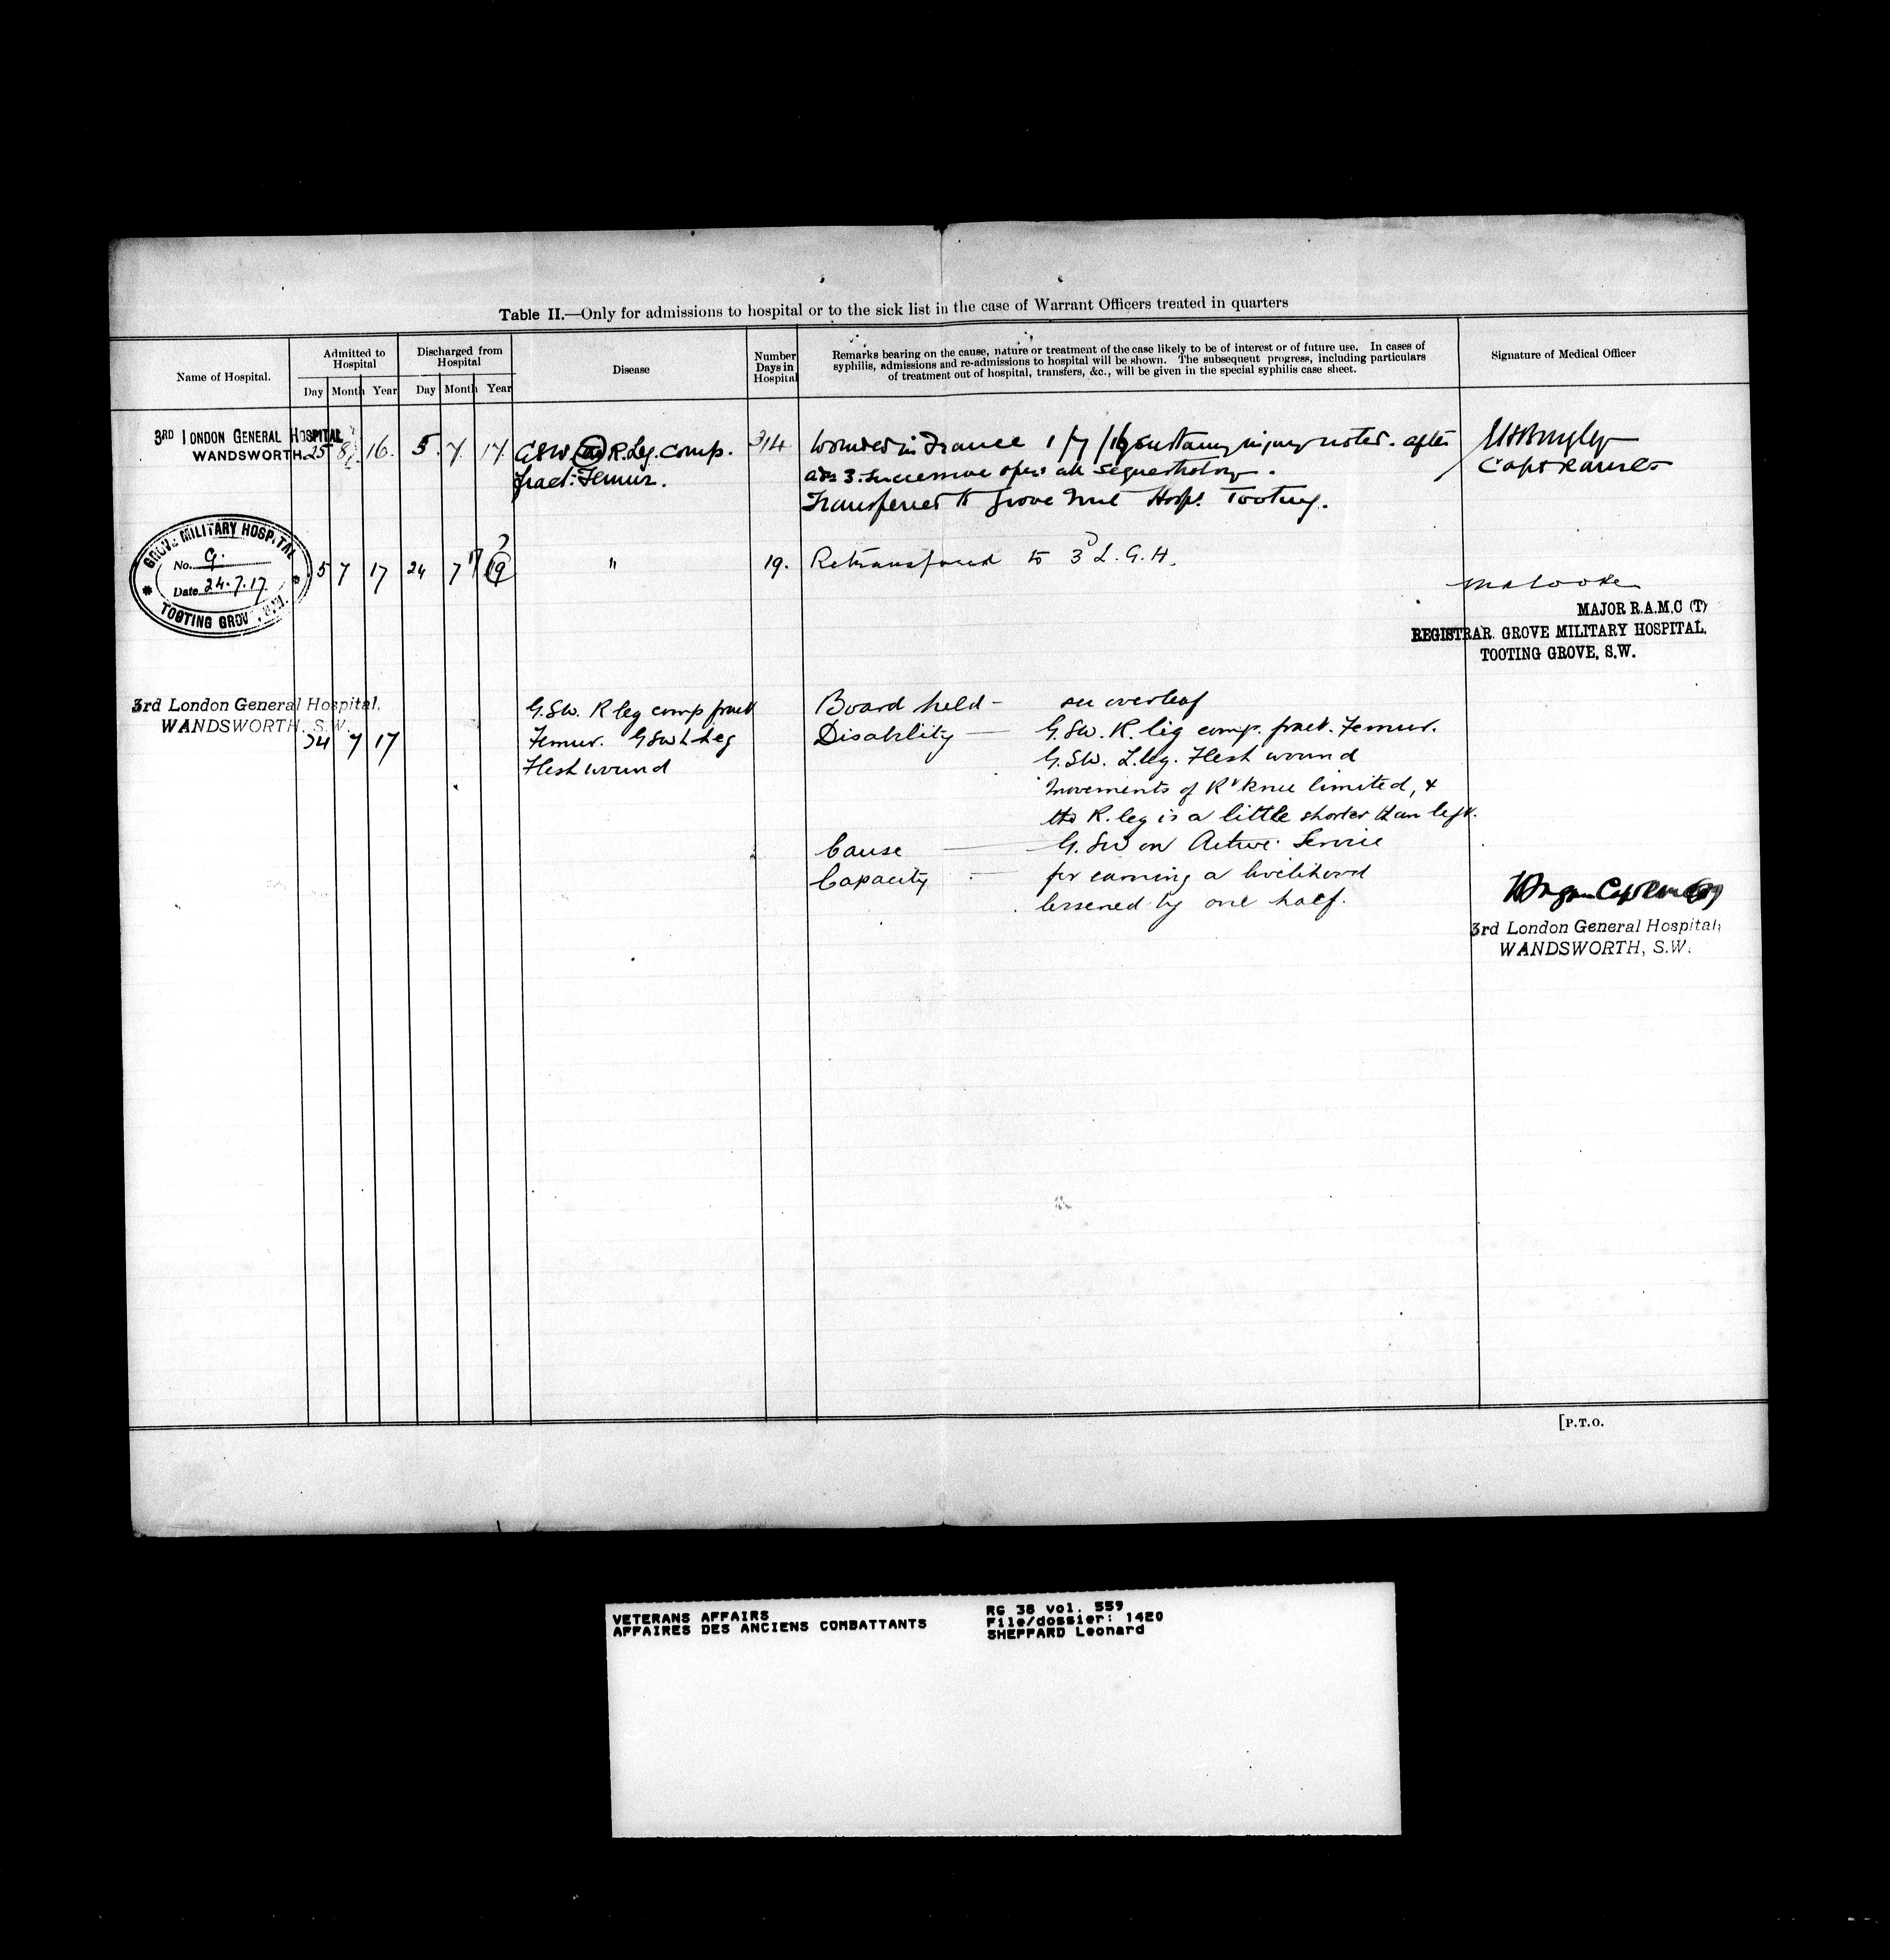 Table II.—Only for admissions to hospital or to the sick list in the case of Warrant Officers treated in quarters
Name of Hospital.
Admitted to Hospital
Discharged from Hospital
Day Month Year Day Month Year
Disease
Number Days in Hospital
Remarks bearing on the cause, nature or treatment of the case likely to be of interest or of future use. In cases of
syphilis, admissions and re-admissions to hospital will be shown. The subsequent progress, including particulars
of treatment out of hospital, transfers, &c., will be given in the special syphilis case sheet.
Signature of Medical Officer
3RD LONDON GENERAL HOSPITAL
WANDSWORTH.
25 8 16. 5. 7. 17.
GSW. R. Leg. Comp.
fract: Femur.
314
Wounded in France 1/7/16 sustaining injury noted. after
3. successive opers
Transferred to Grove Mil Hosp. Tooting.
GROVE MILITARY HOSPITAL
No. 9.
Date 24.7.17
TOOTING GROVE, S.W.
5 7 17 24 7 17 19
"
19.
Retransferred to 3d L. G. H.
MAJOR R.A.M.C (T)
REGISTRAR. GROVE MILITARY HOSPITAL,
TOOTING GROVE, S.W.
3rd London General Hospital,
WANDSWORTH, S.W.
24 7 17
G.SW. R leg comp fract
Femur. GSW L Leg
Flesh wound
Board held - see overleaf
Disability — G.SW. R. leg comp. fract. Femur.
G.SW. L. leg. Flesh wound
Movements of Rt Knee limited, &
the R. leg is a little shorter than left.
Cause — G.SW on Active Service
Capacity — for earning a livelihood
lessened by one half.
3rd London General Hospital,
WANDSWORTH, S.W.
[P.T.O.
VETERANS AFFAIRS
AFFAIRES DES ANCIENS COMBATTANTS
RG 38 vol. 559
File/dossier: 1420
SHEPPARD Leonard